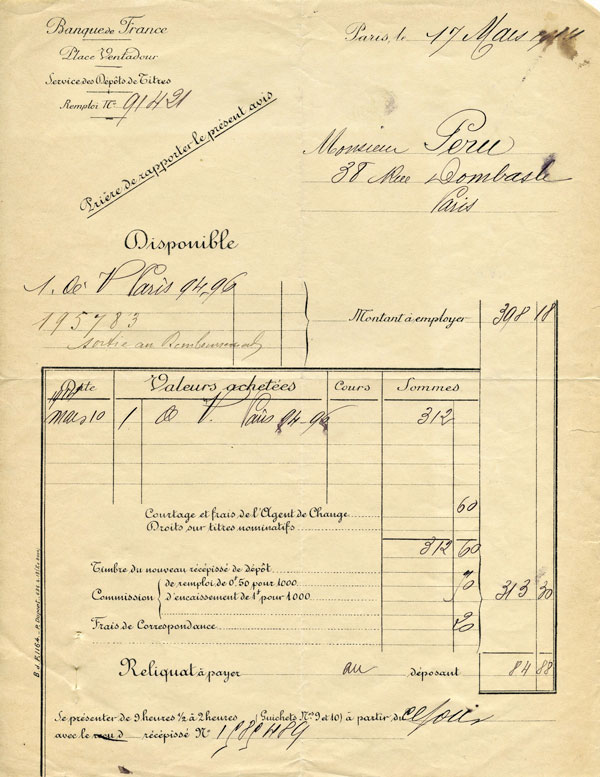 Banque de France
Place Ventadour
Service des Dépôts de Titres
Remploi No 91421
Prière de rapporter le présent avis
Paris, le 17 Mars
Monsieur Peru
38 Rue Dombasle
Paris
Disponible
1. V Paris 94-96
195783
sortie au Remboursement
Montant à employer 398 18
Date Valeurs achetées Cours Sommes
mars 10 1 V. Paris 94-96 312
Courtage et frais de l'Agent de Change 60
Droits sur titres nominatifs
312 60
Timbre du nouveau récépissé de dépôt
Commission { de remploi de 0f50 pour 1000 70 313 30
d'encaissement de 1f pour 1000
Frais de Correspondance 20
Reliquat à payer au déposant 84 88
Se présenter de 9 heures ½ à 2 heures Guichets Nos 9 et 10) à partir du ce jour
avec le récépissé No
B. d. F. 1164